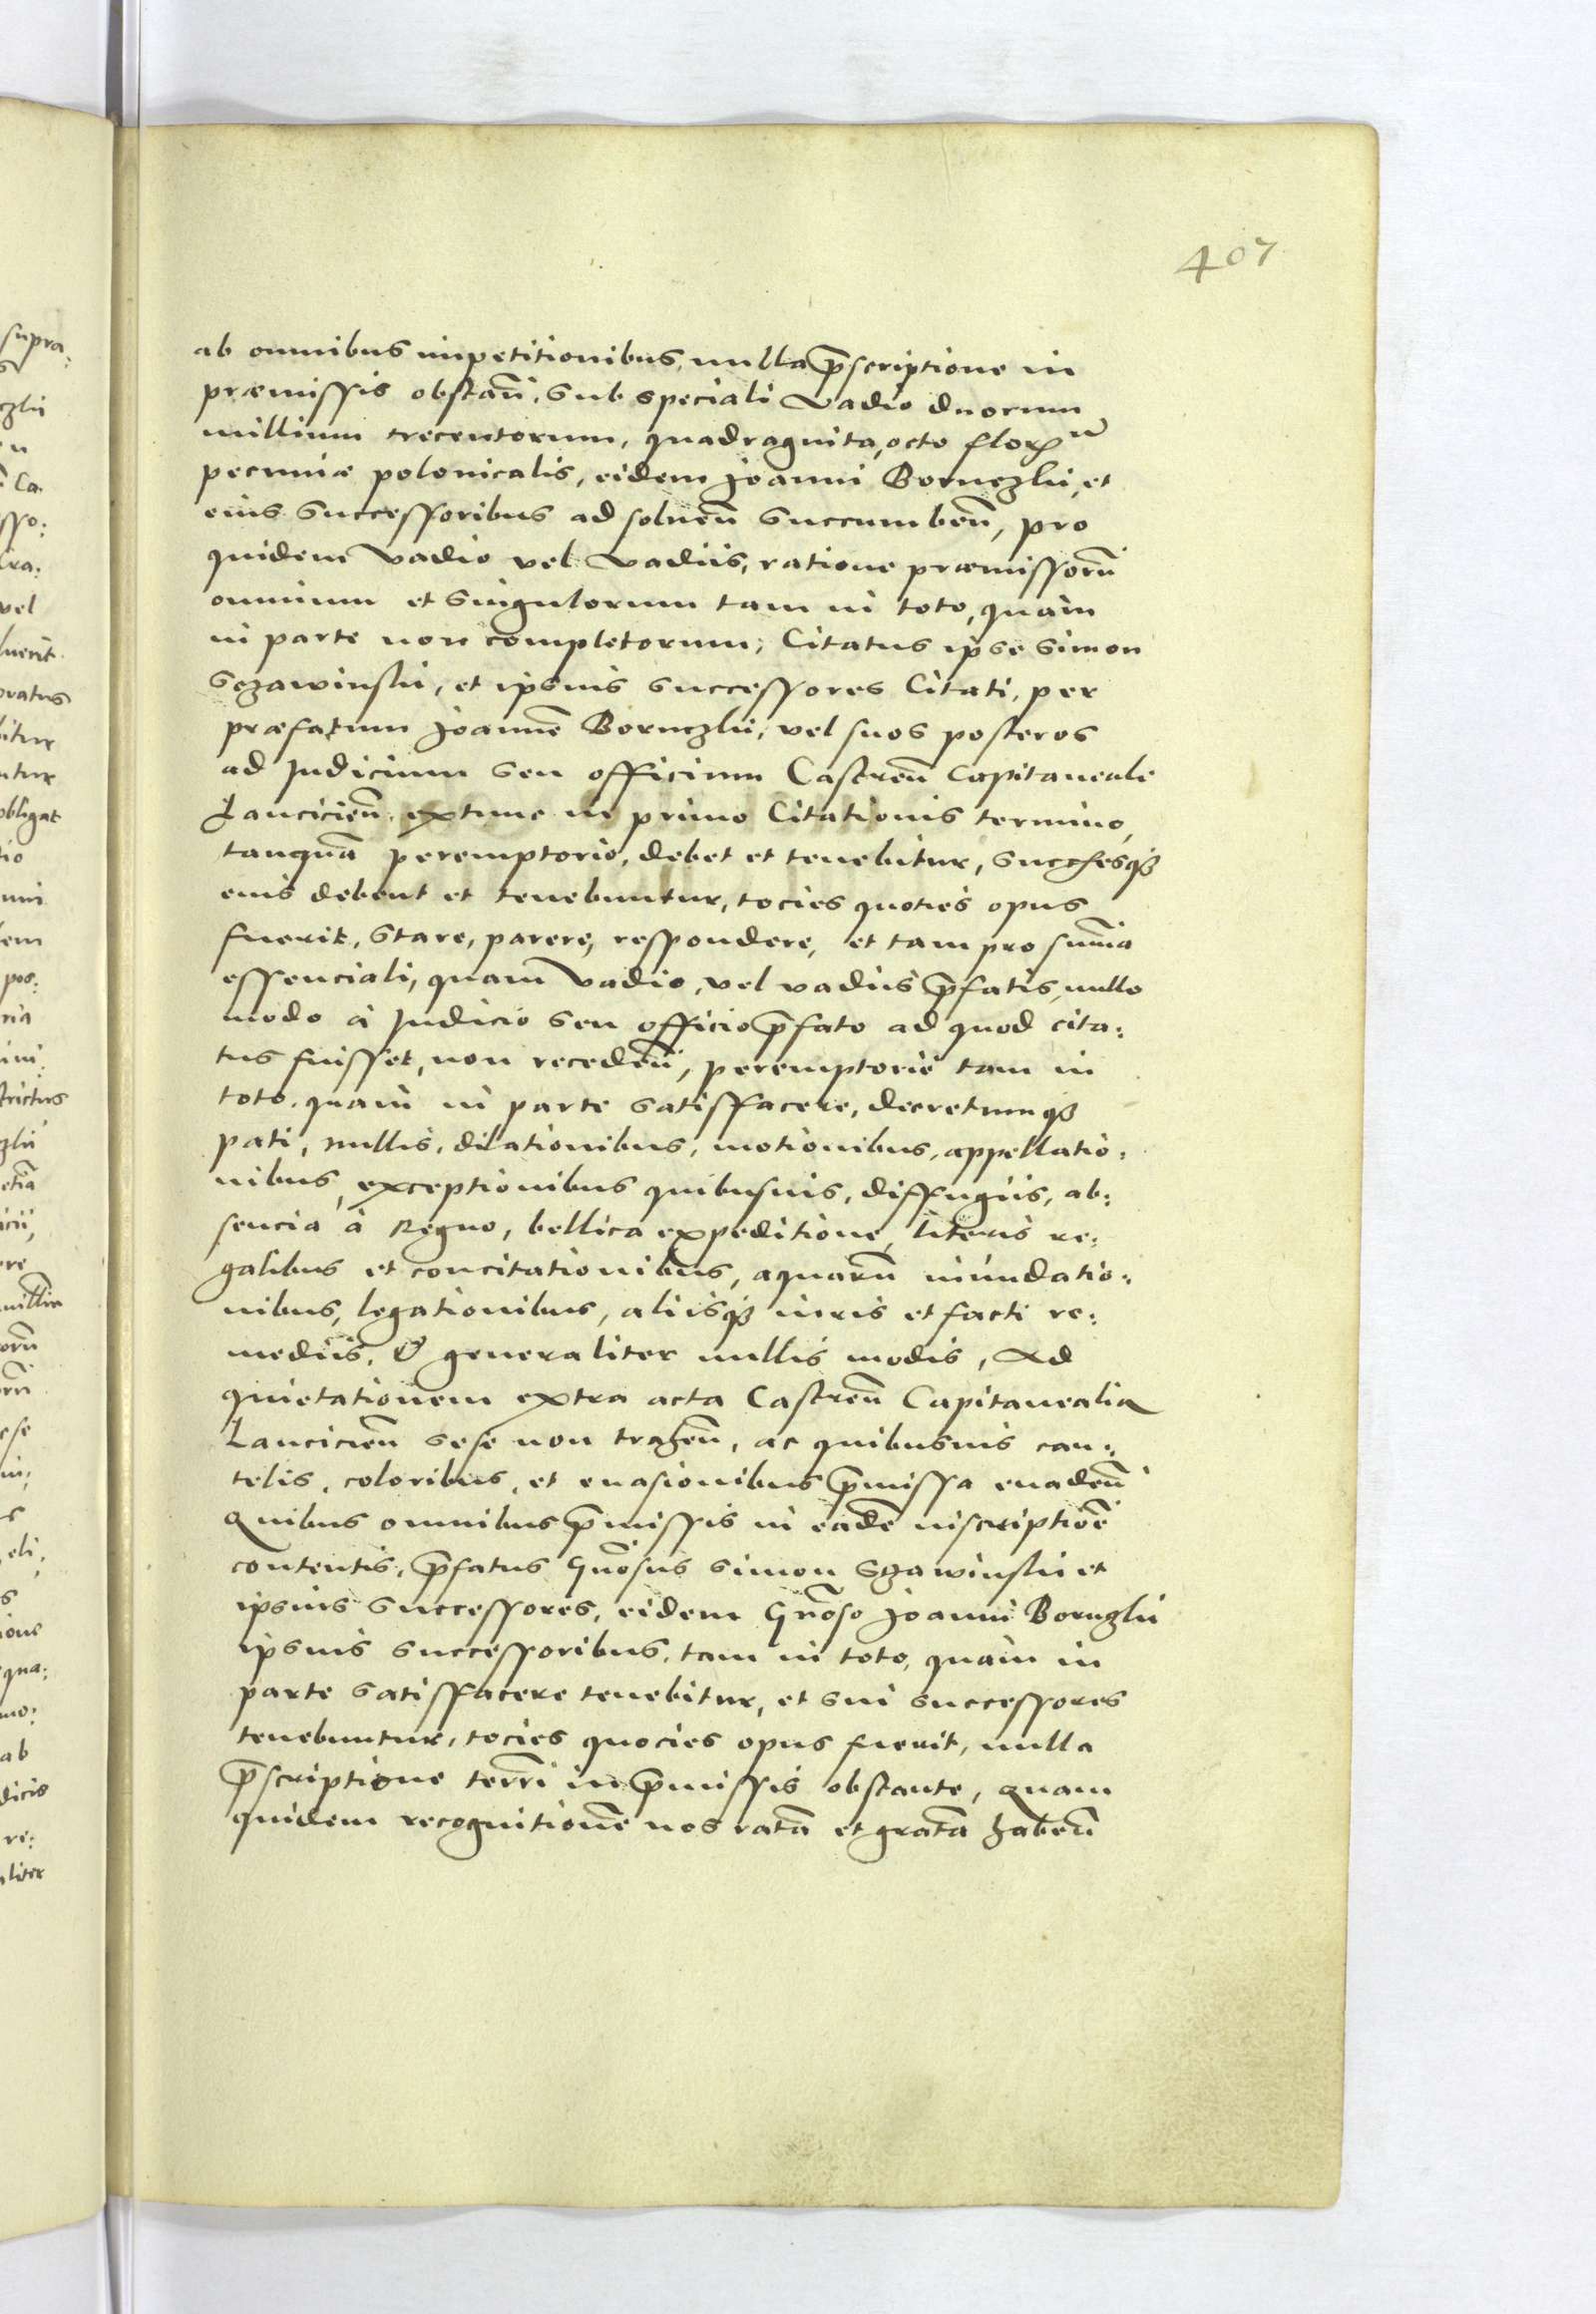 407
ab omnibus impetitionibus, nulla p̄scriptione in
præmissis obstañ. Sub speciali Vadio duorum
millium trecentorum, quadraginta, octo florᵘ
pecuniæ polonicalis, eidem Joanni Bornczki, et
eius Successoribus ad solueñ Succumbeñ, pro
quidem Vadio vel Vadiis, ratione præmissorū
omnium et Singulorum tam in toto, quam
in parte non completorum, Citatus ipse Simon
Sczawinski, et ipsius Successores Citati, per
præfatum Joannē Bornczki, vel suos posteros
ad Judicium Seu officium Castreñ Capitaneale
Lancicieñ, extunc in primo Citationis termino,
tanquā peremptorio, debet et tenebitur, Succ̄resqꝫ
eius debent et tenebuntur, tocies quoties opus
fuerit, Stare, parere, respondere, et tam pro sum̄a
essenciali, quam Vadio, vel vadiis p̄fatis, nullo
modo à Judicio Seu officio p̄fato ad quod cita:
tus fuisset, non recedeñ, peremptorie tam in
toto, quam in parte Satisfacere, decretumqꝫ
pati, nullis, dilationibus, motionibus, appellatio:
nibus, exceptionibus quibusuis, diffugiis, ab:
sencia à Regno, bellica expeditione, literis re:
galibus et concitationibus, aquarū inundatio:
nibus, legationibus, aliisqꝫ iuris et facti re:
mediis, & generaliter nullis modis, Ad
quietationem extra acta Castreñ Capitanealia
Lancicieñ Sese non traheñ, ac quibusuis cau:
telis, coloribus, et euasionibus p̄missa euadeñ
Quibus omnibus p̄missis in eadē inscriptiōe
contentis, p̄fatus Gn̄osus Simon Sczawinski et
ipsius Successores, eidem Gn̄oso Joanni Bornczki
ipsius Successoribus, tam in toto, quam in
parte Satisfacere tenebitur, et Sui Successores
tenebuntur, tocies quocies opus fuerit, nulla
p̄scriptione terr̄i in p̄missis obstante, Quam
quidem recognitionē nos ratā et gratā habeñ